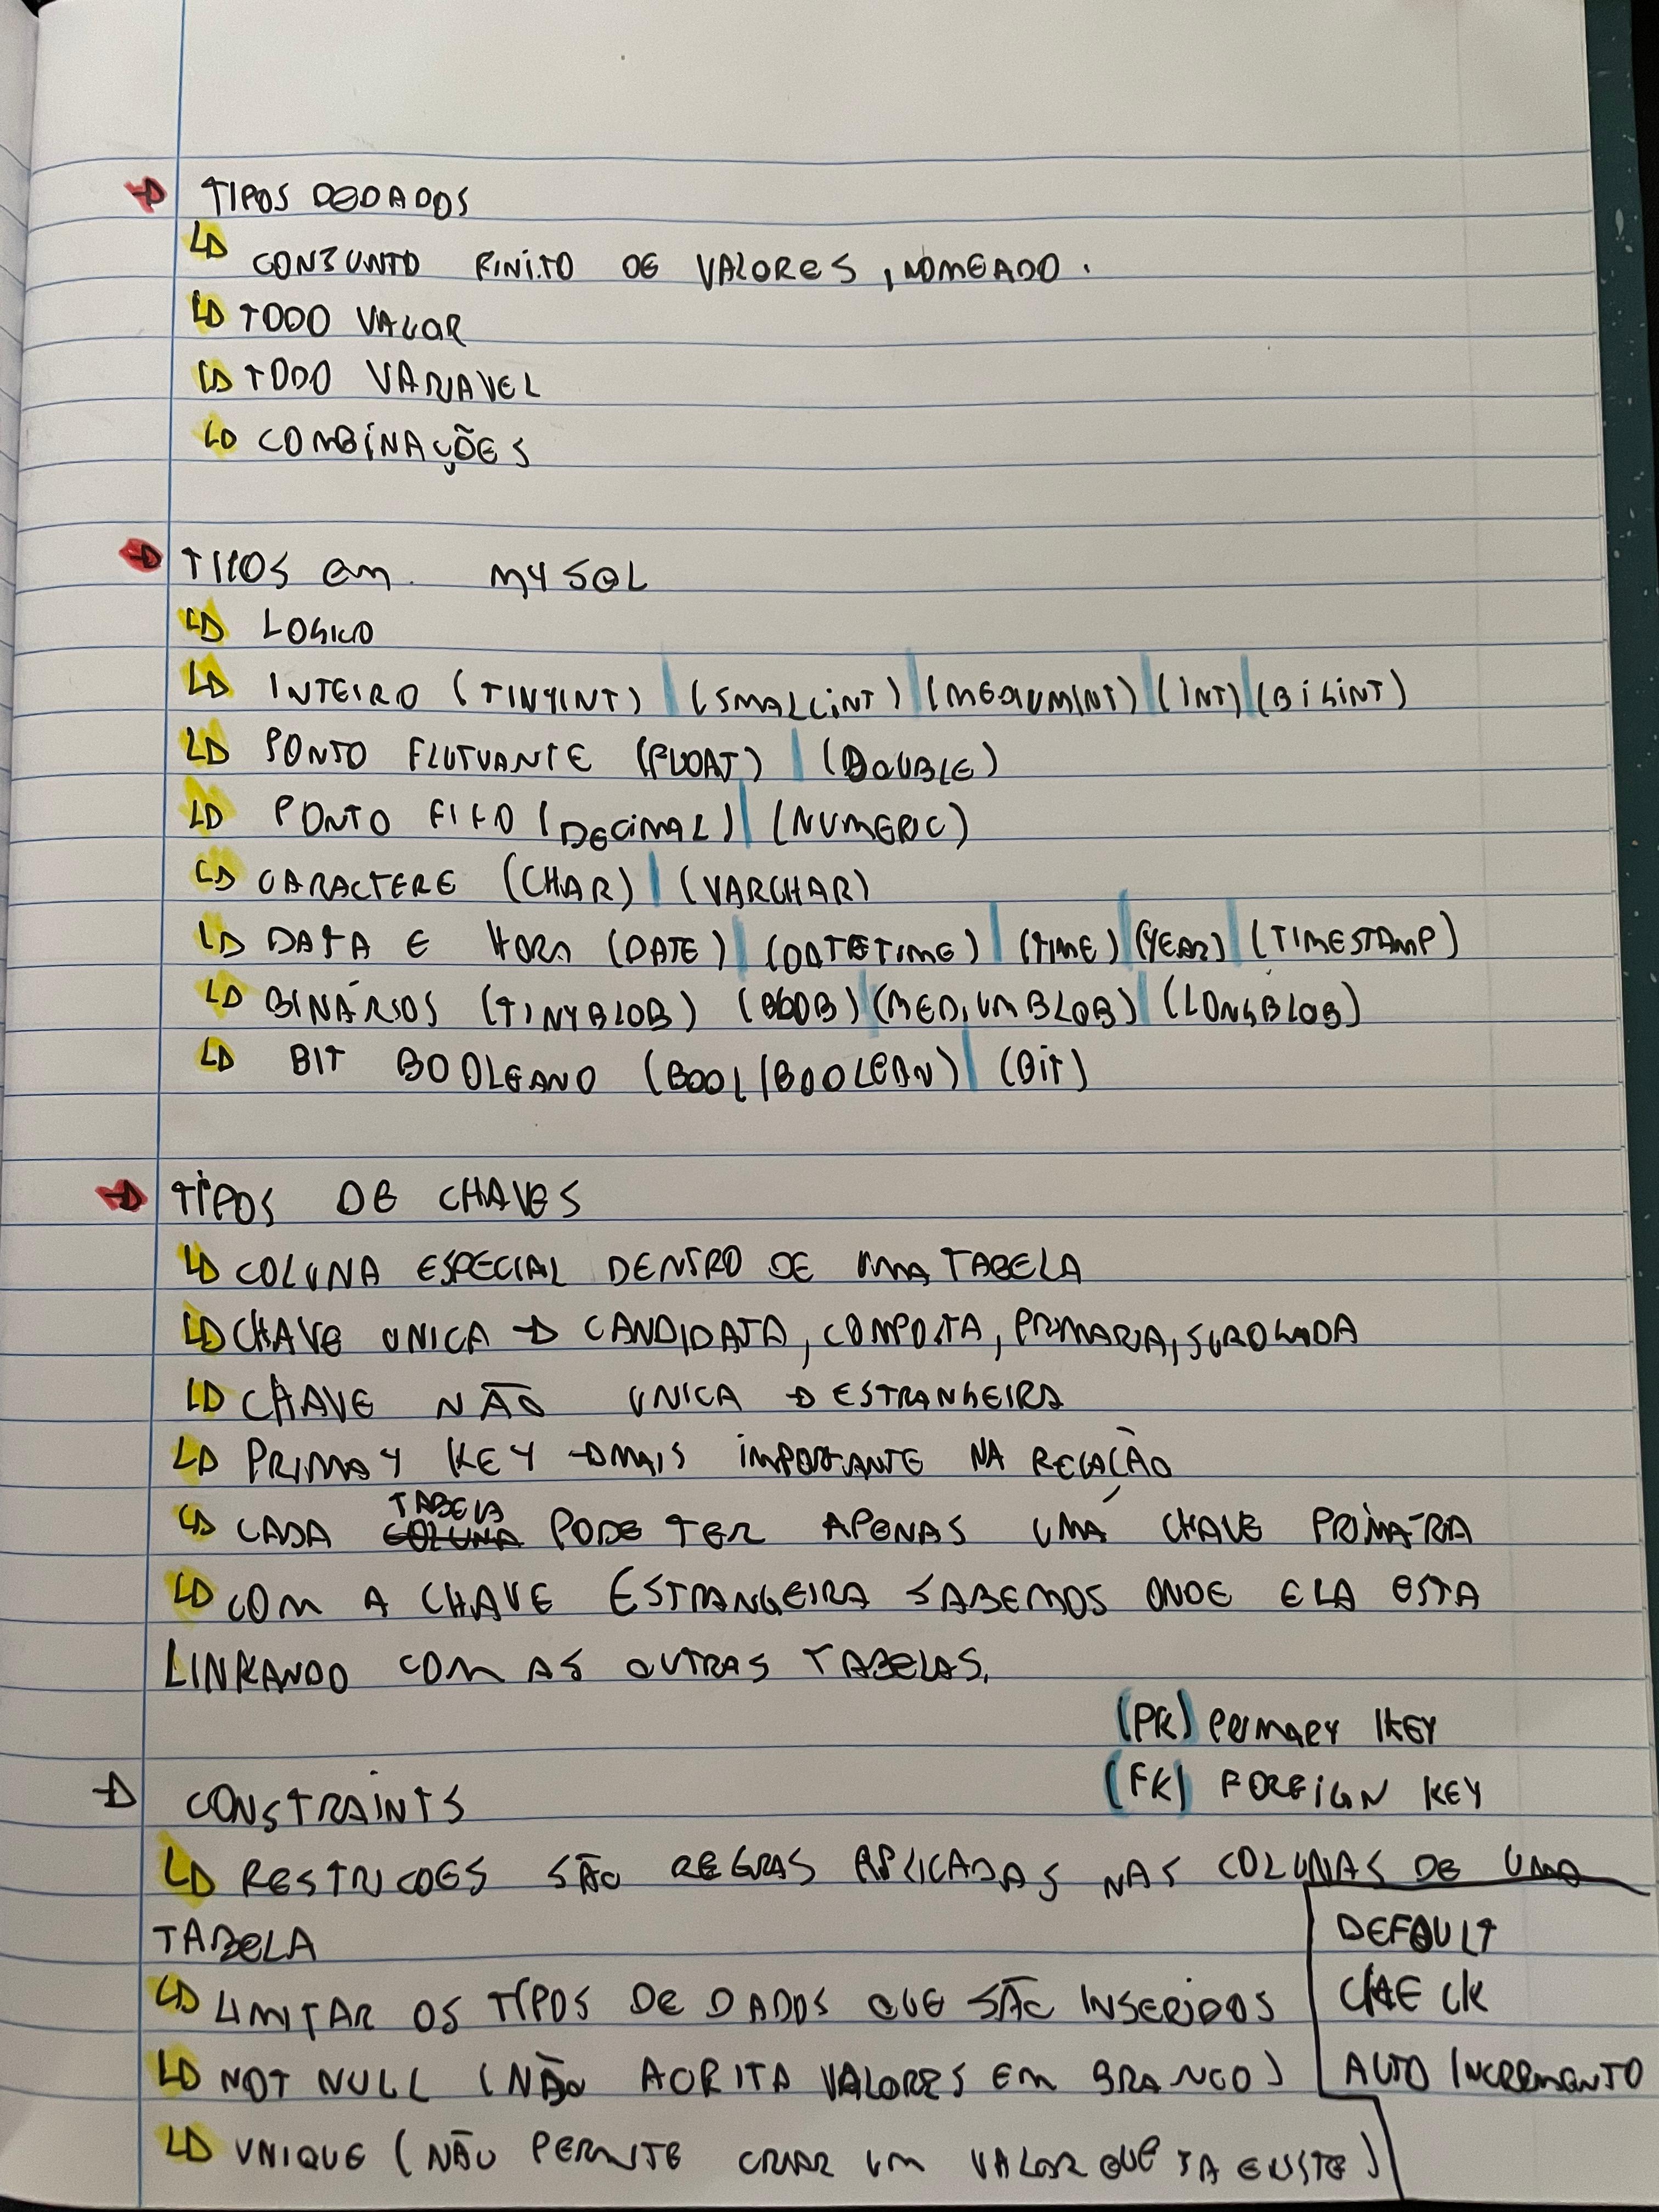 → TIPOS DE DADOS
↳ CONJUNTO FINITO DE VALORES, NOMEADO.
↳ TODO VALOR
↳ TODO VARIAVEL
↳ COMBINAÇÕES
→ TIPOS em MYSQL
↳ LOGICO
↳ INTEIRO (TINYINT) | (SMALLINT) | (MEDIUMINT) | (INT) | (BIGINT)
↳ PONTO FLUTUANTE (FLOAT) | (DOUBLE)
↳ PONTO FIXO (DECIMAL) | (NUMERIC)
↳ CARACTERE (CHAR) | (VARCHAR)
↳ DATA E HORA (DATE) | (DATETIME) | (TIME) | (YEAR) | (TIMESTAMP)
↳ BINÁRIOS (TINYBLOB) (BLOB) | (MEDIUMBLOB) | (LONGBLOB)
↳ BIT BOOLEANO (BOOL/BOOLEAN) | (BIT)
→ TIPOS DE CHAVES
↳ COLUNA ESPECIAL DENTRO DE UMA TABELA
↳ CHAVE UNICA → CANDIDATA, COMPOSTA, PRIMARIA,
↳ CHAVE NÃO UNICA → ESTRANGEIRA
↳ PRIMAY KEY → MAIS IMPORTANTE NA RELAÇÃO
↳ CADA COLUNA TABELA PODE TER APENAS UMA CHAVE PRIMÁRIA
↳ COM A CHAVE ESTRANGEIRA SABEMOS ONDE ELA ESTA
LINKANDO COM AS OUTRAS TABELAS.
(PK) PRIMARY KEY
(FK) FOREIGN KEY
→ CONSTRAINTS
↳ RESTRICOES SÃO REGRAS APLICADAS NAS COLUNAS DE UMA
TABELA
↳ LIMITAR OS TIPOS DE DADOS QUE SÃO INSERIDOS
↳ NOT NULL (NÃO ACEITA VALORES EM BRANCO)
↳ UNIQUE (NÃO PERMITE CRIAR UM VALOR QUE JA EXISTE)
DEFAULT
CHECK
AUTO INCREMENTO